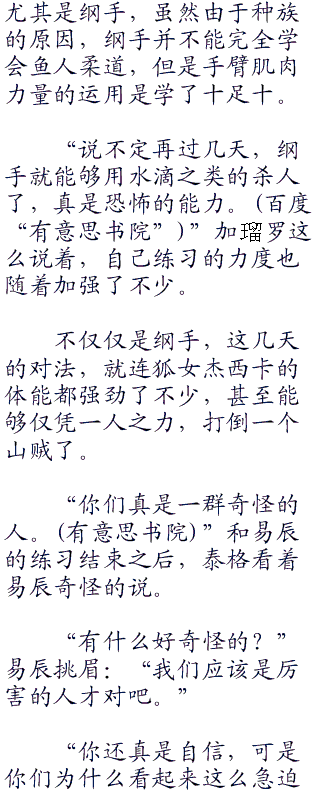 尤其是纲手，虽然由于种族
的原因，纲手并不能完全学
会鱼人柔道，但是手臂肌肉
力量的运用是学了十足十。
“说不定再过几天，纲
手就能够用水滴之类的杀人
了，真是恐怖的能力。(百度
“有意思书院”)”加瑠罗这
么说着，自己练习的力度也
随着加强了不少。
不仅仅是纲手，这几天
的对法，就连狐女杰西卡的
体能都强劲了不少，甚至能
够仅凭一人之力，打倒一个
山贼了。
“你们真是一群奇怪的
人。(有意思书院)”和易辰
的练习结束之后，泰格看着
易辰奇怪的说。
“有什么好奇怪的？”
易辰挑眉：“我们应该是厉
害的人才对吧。”
“你还真是自信，可是
你们为什么看起来这么急迫